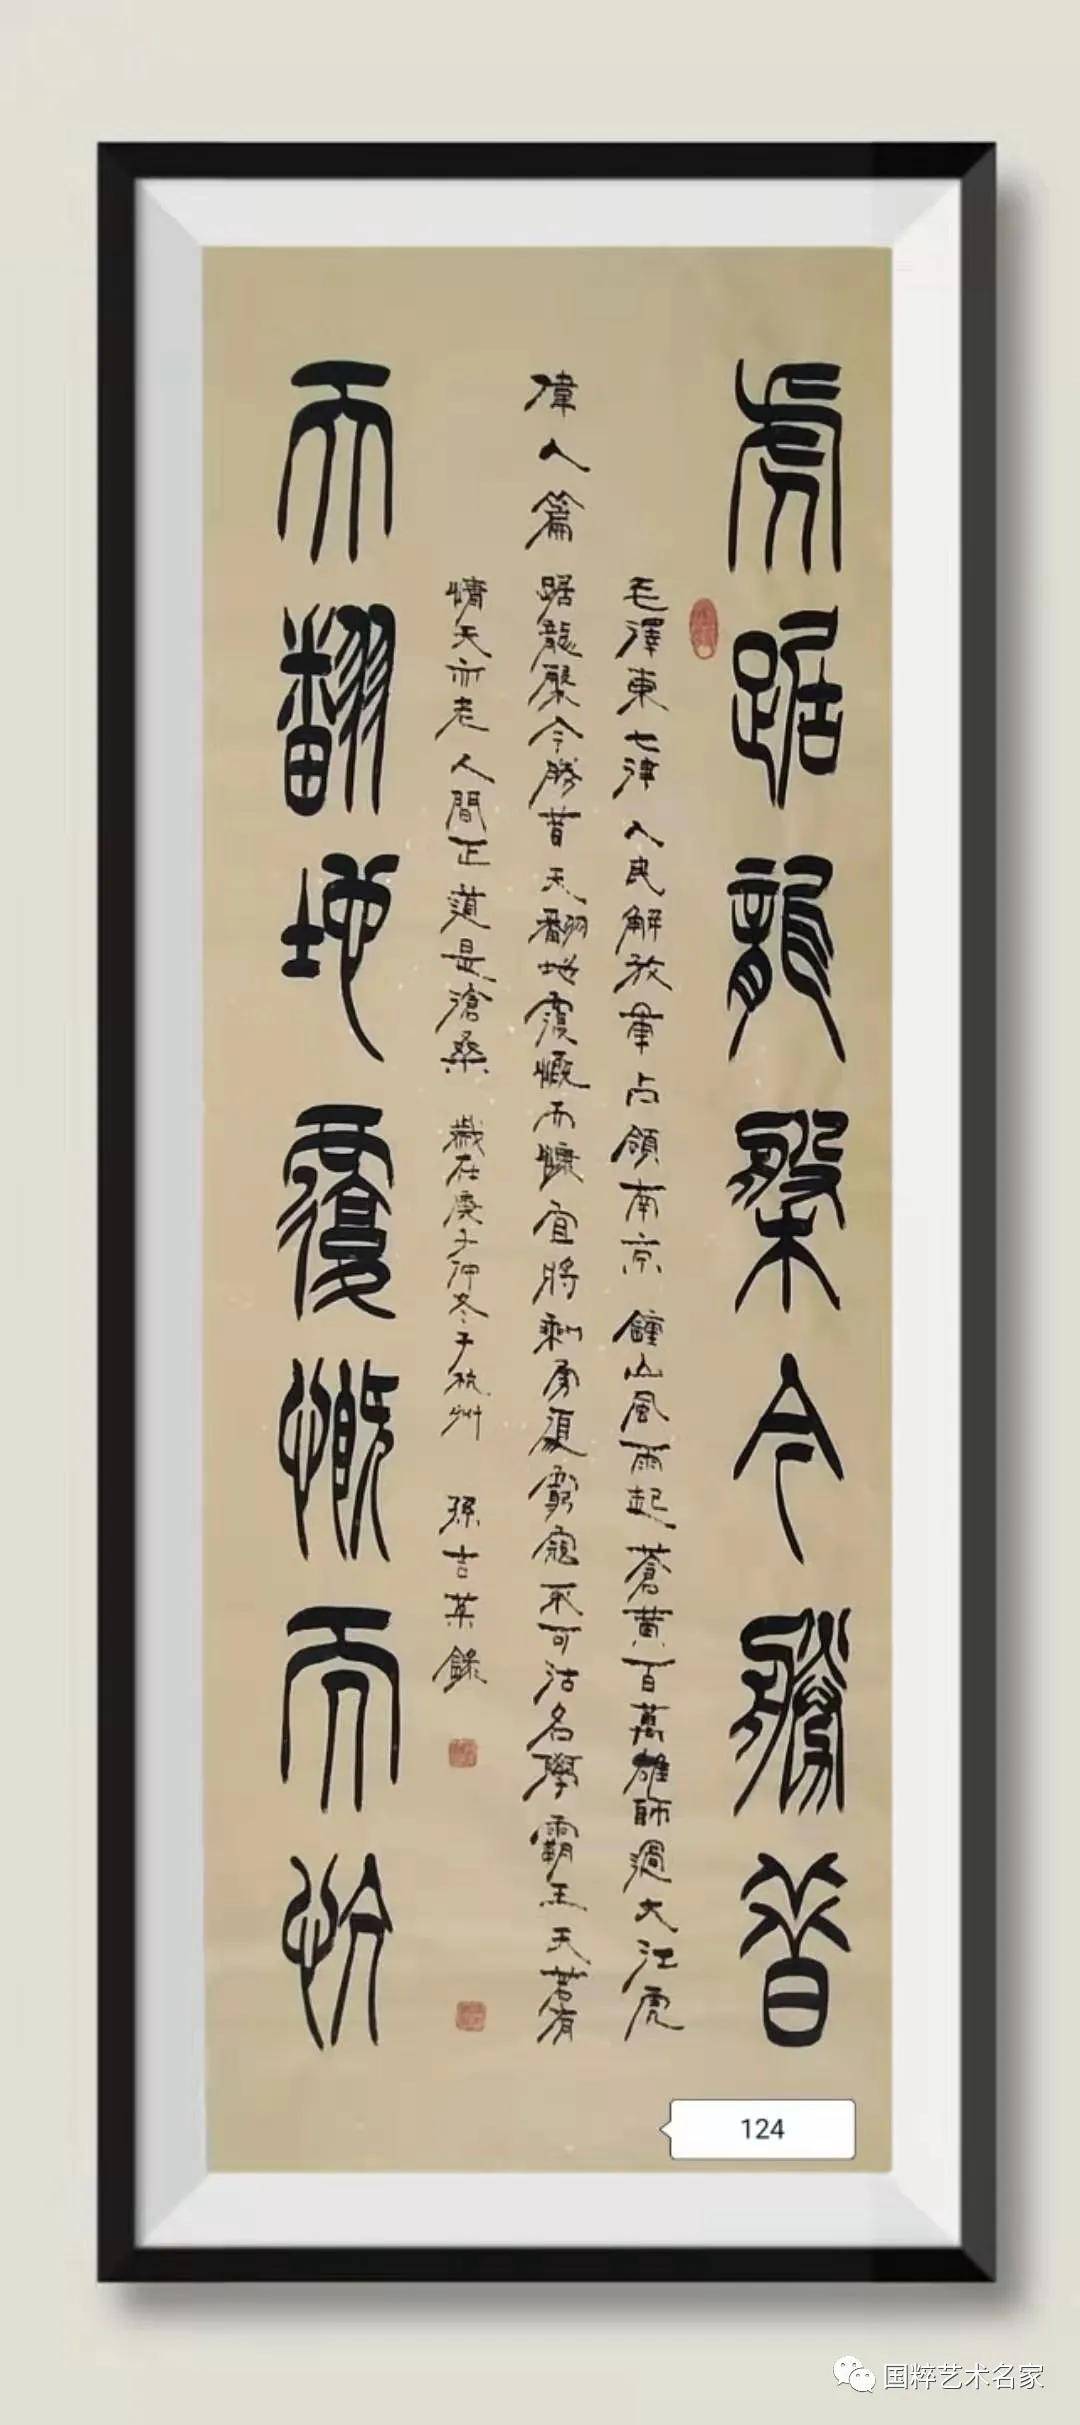 虎踞龍槃今勝昔
毛澤東七律人民解放軍占領南京 鐘山風雨起蒼黃百萬雄師過大江虎
偉人篇
踞龍槃今勝昔天翻地覆慨而慷宜將剩勇追窮寇不可沽名學霸王天若有
情天亦老人間正道是滄桑 歲在庚子仲冬于杭州 孫吉英錄
天翻地覆慨而忼
124
国粹艺术名家